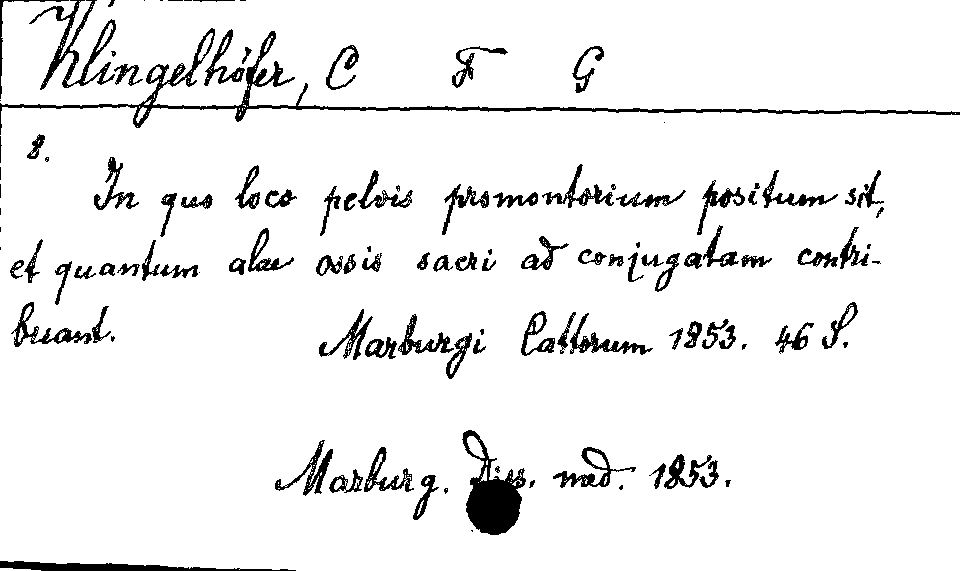 Klingelhöfer, C F G
8.
In quo loco pelvis promontorium positum sit,
et quantum alae ossis sacri ad conjugatam contri-
buant. Marburgi Cattorum 1853. 46 S.
Marburg. Diss. med. 1853.